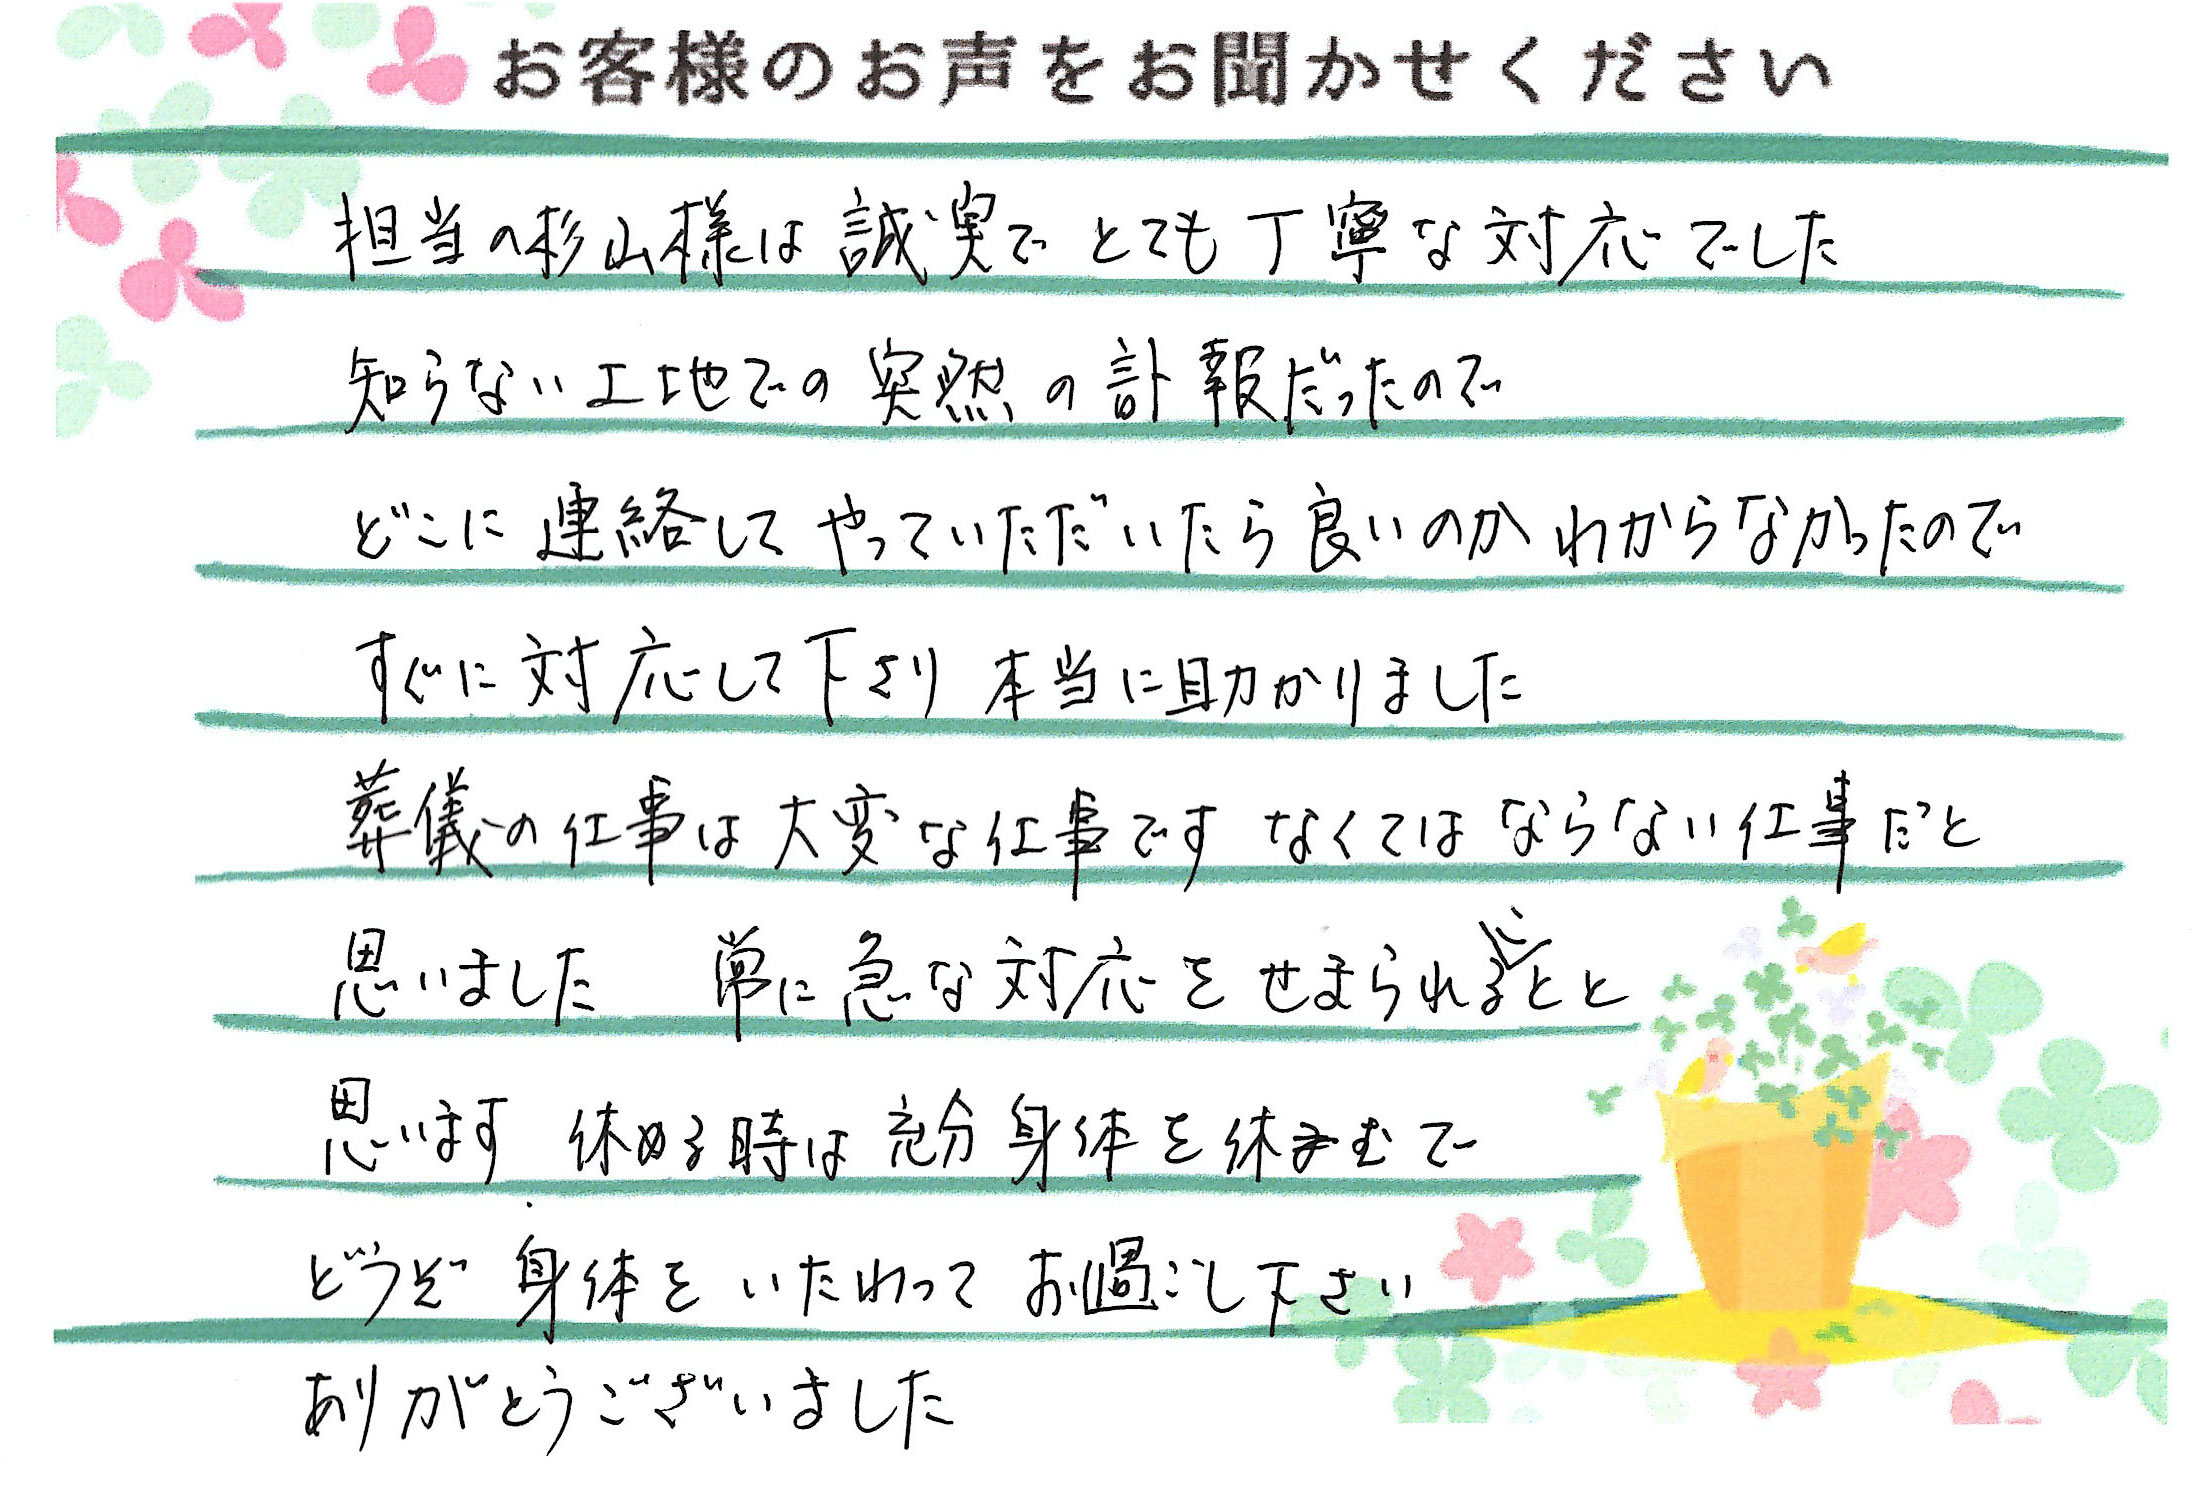 お客様のお声をお聞かせください
担当の杉山様は誠実でとても丁寧な対応でした
知らない土地での突然の訃報だったので
どこに連絡してやっていただいたら良いのかわからなかったので
すぐに対応して下さり本当に助かりました
葬儀の仕事は大変な仕事です なくてはならない仕事だと
思いました 常に急な対応をせまられることと
思います 休める時は充分身体を休むで
どうぞ身体をいたわってお過ごし下さい
ありがとうございました